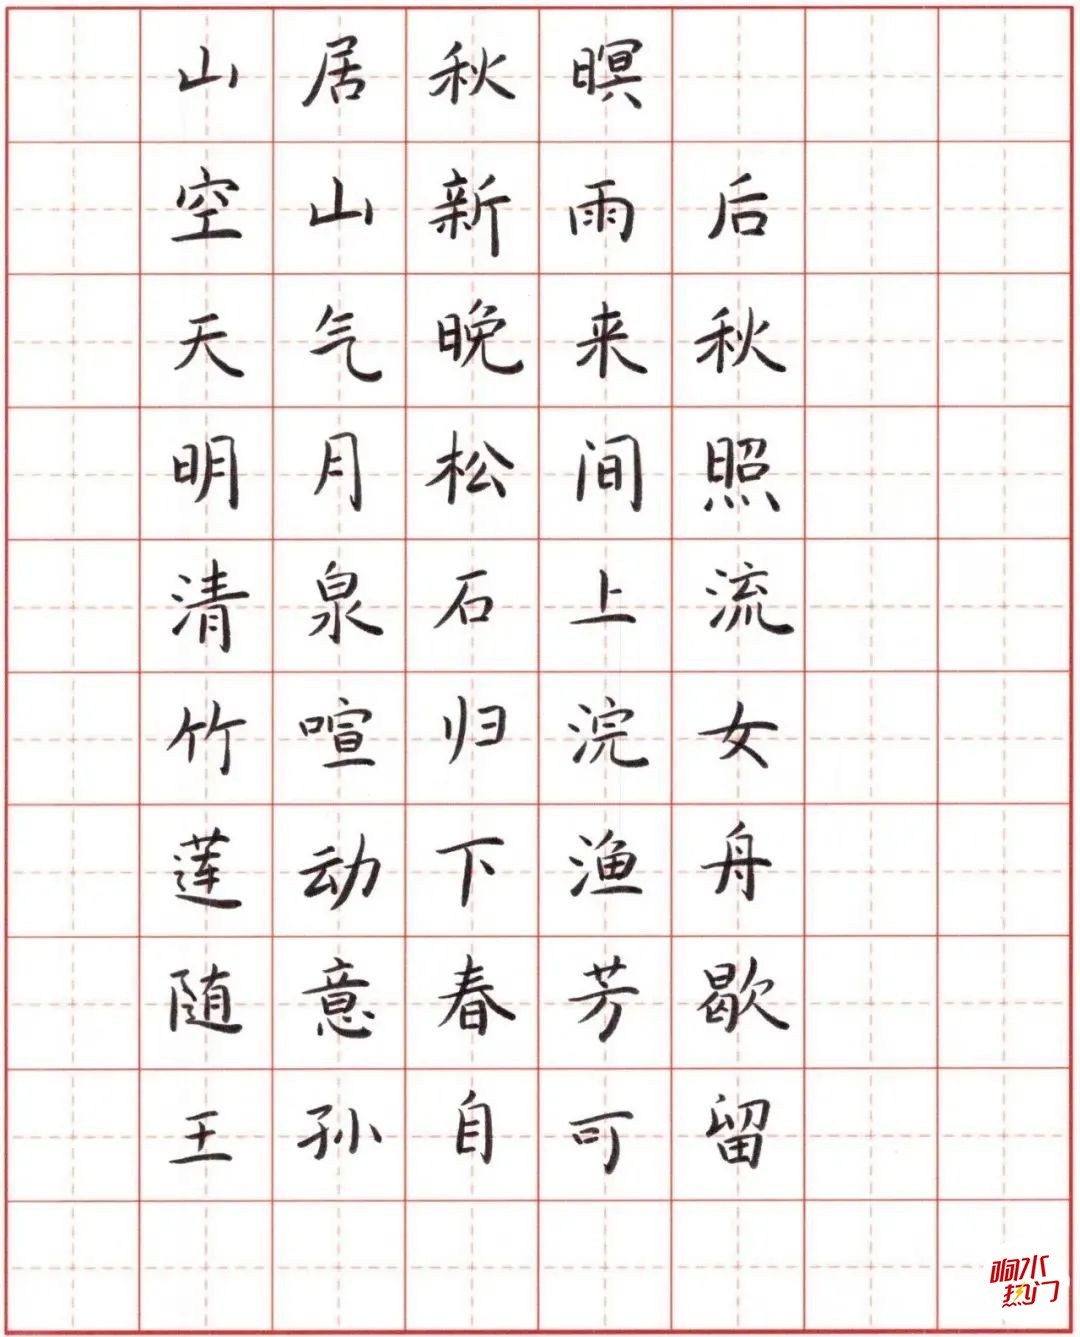 山居秋暝
空山新雨后
天气晚来秋
明月松间照
清泉石上流
竹喧归浣女
莲动下渔舟
随意春芳歇
王孙自可留
响水
热门